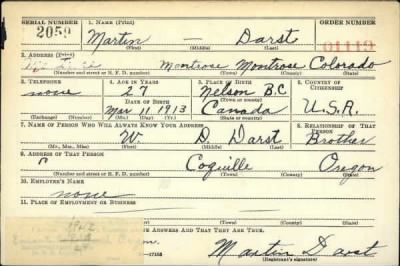 SERIAL NUMBER 1. NAME (Print) ORDER NUMBER
2059 Martin — Darst 01119
(First) (Middle) (Last)
2. ADDRESS (Print)
Montrose Montrose Colorado
(Number and street or R. F. D. number) (Town) (County) (State)
3. TELEPHONE 4. AGE IN YEARS 5. PLACE OF BIRTH 6. COUNTRY OF CITIZENSHIP
none 27 Nelson B.C.
DATE OF BIRTH (Town or county)
Mar 11 1913 Canada U.S.A.
(Exchange) (Number) (Mo.) (Day) (Yr.) (State or country)
7. NAME OF PERSON WHO WILL ALWAYS KNOW YOUR ADDRESS 8. RELATIONSHIP OF THAT PERSON
W D Darst Brother
(Mr., Mrs., Miss) (First) (Middle) (Last)
9. ADDRESS OF THAT PERSON
Coquille Oregon
(Number and street or R. F. D. number) (Town) (County) (State)
10. EMPLOYER'S NAME
none
11. PLACE OF EMPLOYMENT OR BUSINESS
ANSWERS AND THAT THEY ARE TRUE.
Martin Darst
(Registrant's signature)